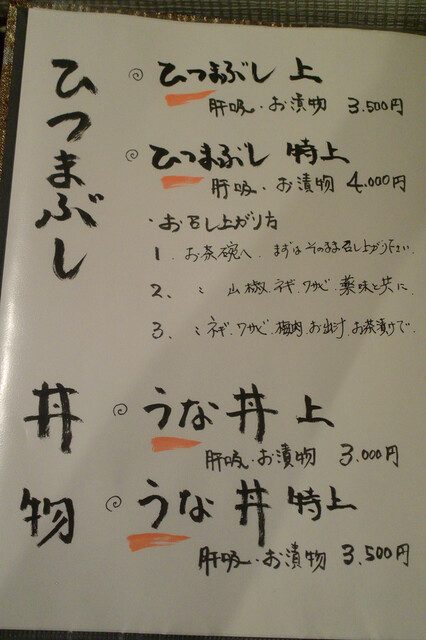 ひつまぶし
ひつまぶし 上
肝吸・お漬物 3.500円
ひつまぶし 特上
肝吸・お漬物 4.000円
・お召し上がり方
1. お茶碗へ、まずはそのまま召し上がり下さい、
2、 〃 山椒、ネギ、ワサビ、薬味と共に、
3、 〃 ネギ、ワサビ、梅肉、お出汁、お茶漬けで、
丼物
うな丼 上
肝吸・お漬物 3.000円
うな丼 特上
肝吸・お漬物 3.500円